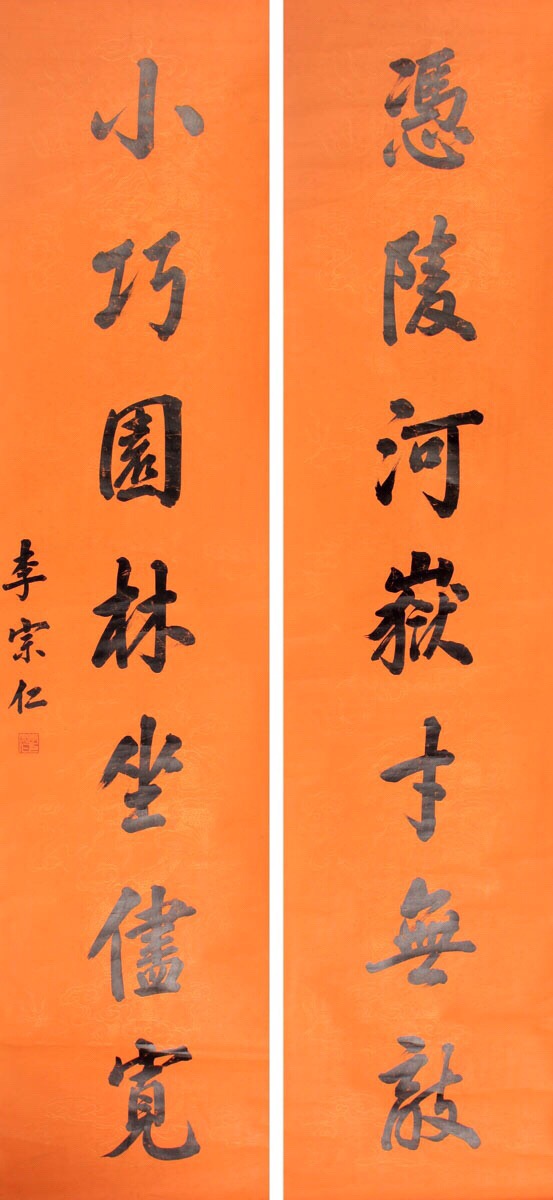 憑陵河嶽才無敵
小巧園林坐儘寬
李宗仁